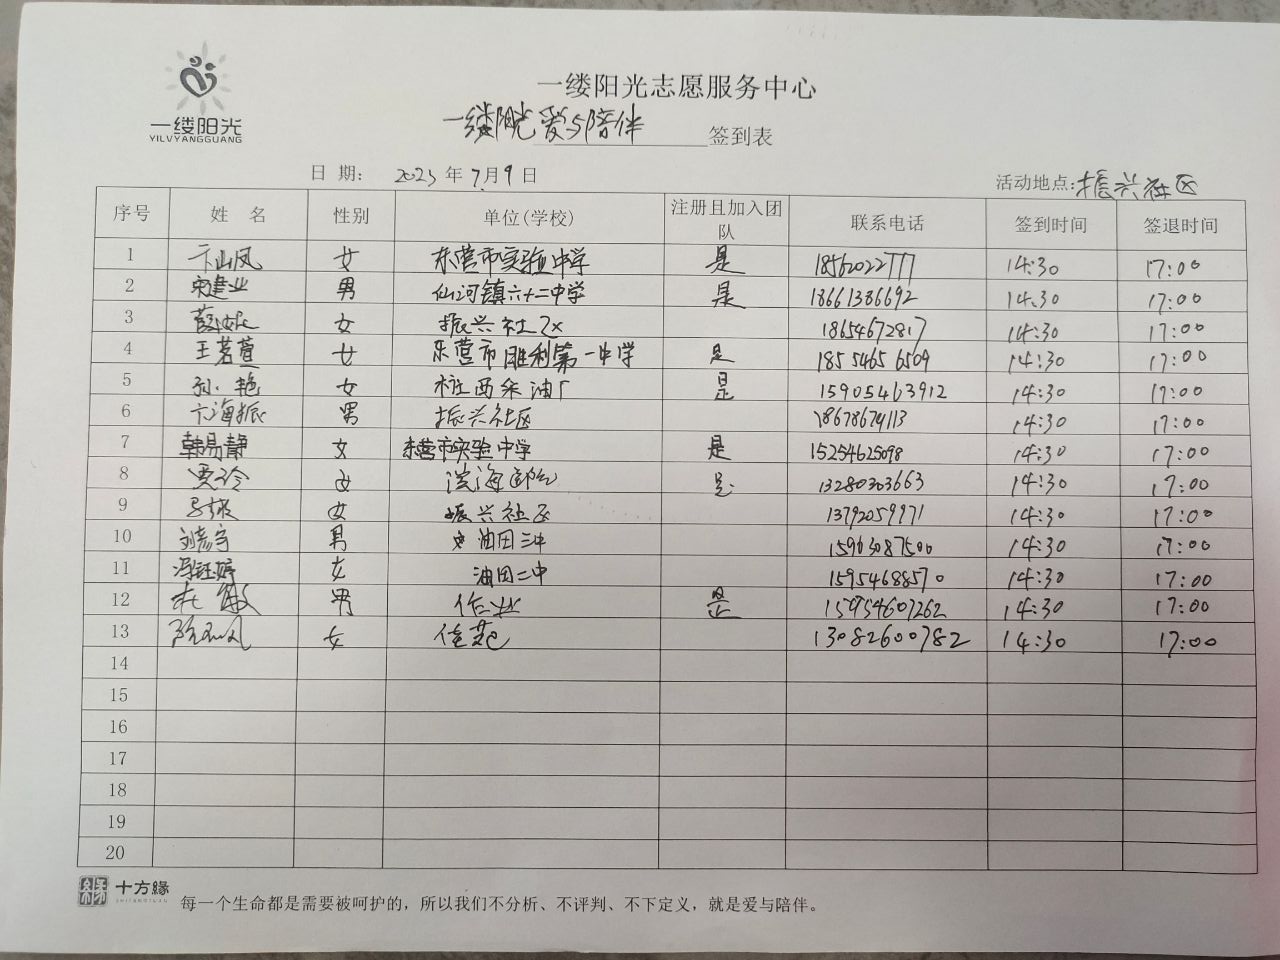 一缕阳光
YILVYANGGUANG
一缕阳光志愿服务中心
一缕阳光爱与陪伴 签到表
日 期： 2023 年 7月 9 日 活动地点:振兴社区
序号 姓 名 性别 单位(学校) 注册且加入团队 联系电话 签到时间 签退时间
1 卞山凤 女 东营市实验中学 是 18562022777 14:30 17:00
2 宋建业 男 仙河镇六十二中学 是 18661386692 14:30 17:00
3 女 振兴社区 18654672817 14:30 17:00
4 王茗萱 女 东营市胜利第一中学 是 18554656509 14:30 17:00
5 孙艳 女 桩西采油厂 是 15905463912 14:30 17:00
6 卞海振 男 振兴社区 18678674113 14:30 17:00
7 韩易静 女 东营市实验中学 是 15254625098 14:30 17:00
8 贾玲 女 滨海 是 13280303663 14:30 17:00
9 女 振兴社区 13792059971 14:30 17:00
10 刘彦宇 男 油田三中 15963087500 14:30 17:00
11 冯钰婷 女 油田二中 15954688570 14:30 17:00
12 男 作业 是 15954607262 14:30 17:00
13 女 佳苑 13082600782 14:30 17:00
14
15
16
17
18
19
20
十方緣
SHIFANGYUAN
每一个生命都是需要被呵护的，所以我们不分析、不评判、不下定义，就是爱与陪伴。